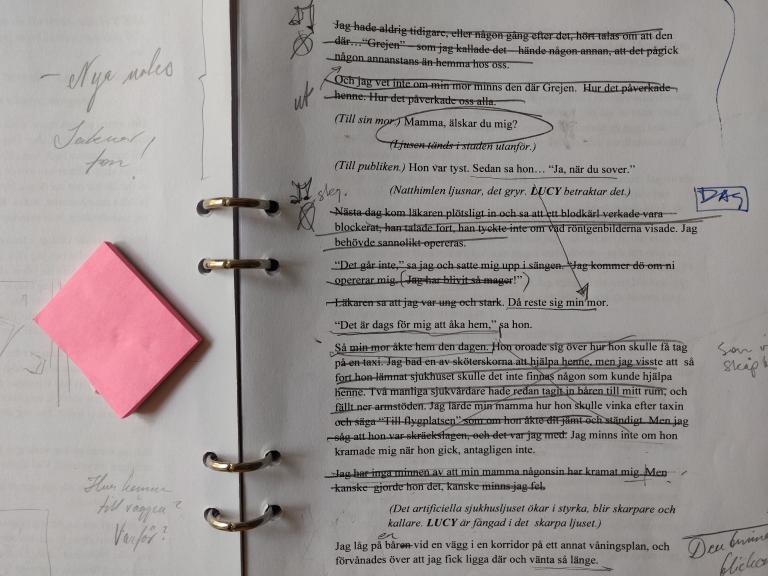 Nya noter
ton!
Hur kommer
till väggen?
Varför?
Jag hade aldrig tidigare, eller någon gång efter det, hört talas om att den
där…“Grejen” – som jag kallade det – hände någon annan, att det pågick
någon annanstans än hemma hos oss.
ut
Och jag vet inte om min mor minns den där Grejen. Hur det påverkade
henne. Hur det påverkade oss alla.
(Till sin mor.) Mamma, älskar du mig?
(Ljusen tänds i staden utanför.)
(Till publiken.) Hon var tyst. Sedan sa hon… “Ja, när du sover.”
(Natthimlen ljusnar, det gryr. LUCY betraktar det.)
DAG
Nästa dag kom läkaren plötsligt in och sa att ett blodkärl verkade vara
blockerat, han talade fort, han tyckte inte om vad röntgenbilderna visade. Jag
behövde sannolikt opereras.
“Det går inte,” sa jag och satte mig upp i sängen. “Jag kommer dö om ni
opererar mig. (Jag har blivit så mager!”)
Läkaren sa att jag var ung och stark. Då reste sig min mor.
“Det är dags för mig att åka hem,” sa hon.
Så min mor åkte hem den dagen. Hon oroade sig över hur hon skulle få tag
på en taxi. Jag bad en av sköterskorna att hjälpa henne, men jag visste att så
fort hon lämnat sjukhuset skulle det inte finnas någon som kunde hjälpa
henne. Två manliga sjukvårdare hade redan tagit in båren till mitt rum, och
fällt ner armstöden. Jag lärde min mamma hur hon skulle vinka efter taxin
och säga “Till flygplatsen” som om hon åkte dit jämt och ständigt. Men jag
såg att hon var skräckslagen, och det var jag med. Jag minns inte om hon
kramade mig när hon gick, antagligen inte.
Jag har inga minnen av att min mamma någonsin har kramat mig. Men
kanske gjorde hon det, kanske minns jag fel.
(Det artificiella sjukhusljuset ökar i styrka, blir skarpare och
kallare. LUCY är fångad i det skarpa ljuset.)
en
Jag låg på båren vid en vägg i en korridor på ett annat våningsplan, och
förvånades över att jag fick ligga där och vänta så länge.